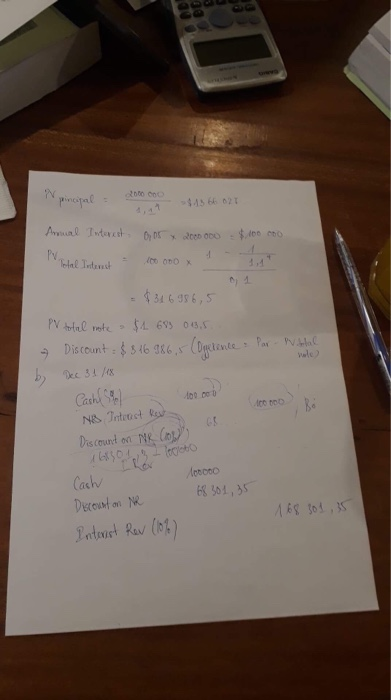 PV principal = 2000 000 / 1,1⁴ = $1366 028
Annual Interest: 0,05 × 2000 000 = $100.000
PV Total Interest = 100 000 × (1 - 1/1,1⁴) / 0,1
= $316 986,5
PV total note = $1 683 013,5
→ Discount: $316 986,5 ( = Par - PV total note)
b) Dec 31/18
Cash 100.000
NR Interest Rev (100 000) Bỏ
Discount on NR 68
168301,3 - 100000
I Rev
Cash 100000
Discount on NR 68 301,35
Interest Rev (10%) 168 301,35